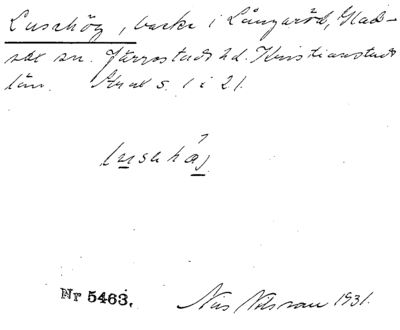 Luschög, backe i Långaröd, Glad-
sax sn. Järrestads hd. Kristianstads
län. s. 1 i 21.
luschög
Nr 5463.
Nils Nilsson 1931.